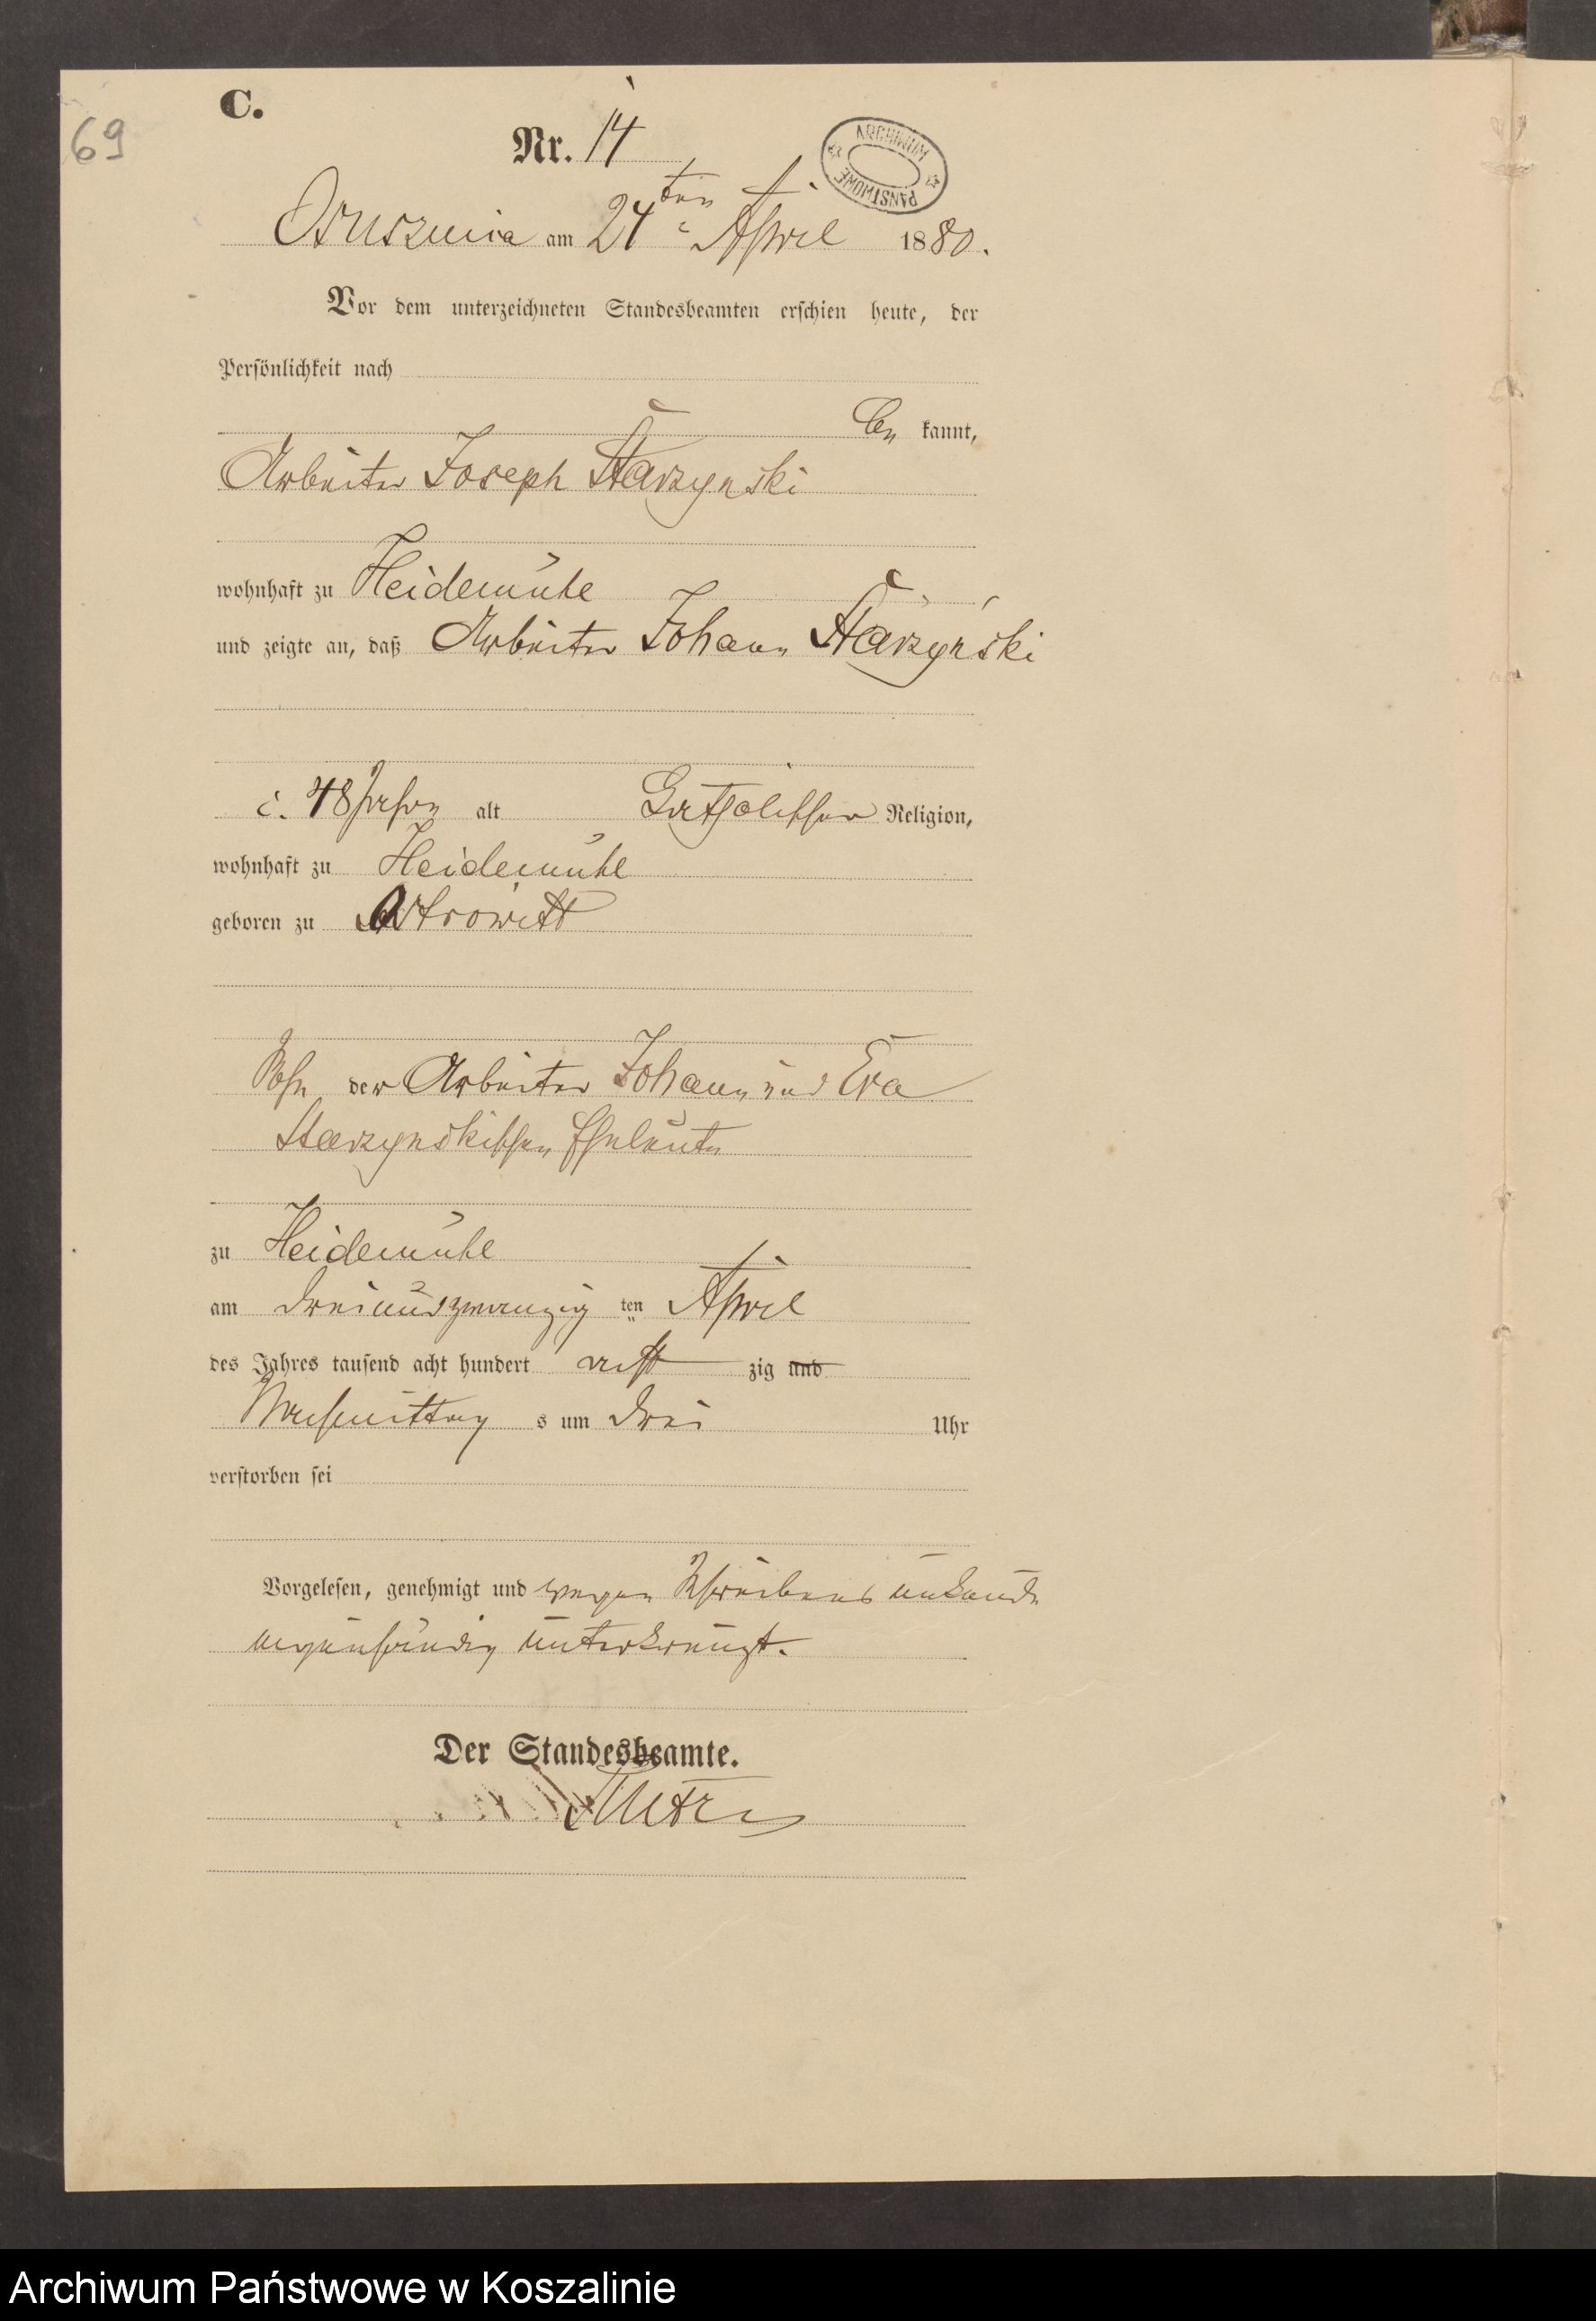 C.
69
Nr. 14
ARCHIWUM PAŃSTWOWE
Osuszniza am 24ten April 1880.
Vor dem unterzeichneten Standesbeamten erschien heute, der
Persönlichkeit nach
be kannt,
Arbeiter Joseph Starzynski
wohnhaft zu Heidemühl
und zeigte an, daß Arbeiter Johann Starzynski
c. 48 Jahre alt Catholischer Religion,
wohnhaft zu Heidemühl
geboren zu Ostrowitt
Sohn der Arbeiter Johann und Eva
Starzynskischen Eheleute
zu Heidemühl
am dreiundzwanzig ten April
des Jahres tausend acht hundert acht zig und
Nachmittag s um drei Uhr
verstorben sei
Vorgelesen, genehmigt und wegen Schreibens unkunde
eigenhändig unterkreuzt.
Der Standesbeamte.
Archiwum Państwowe w Koszalinie